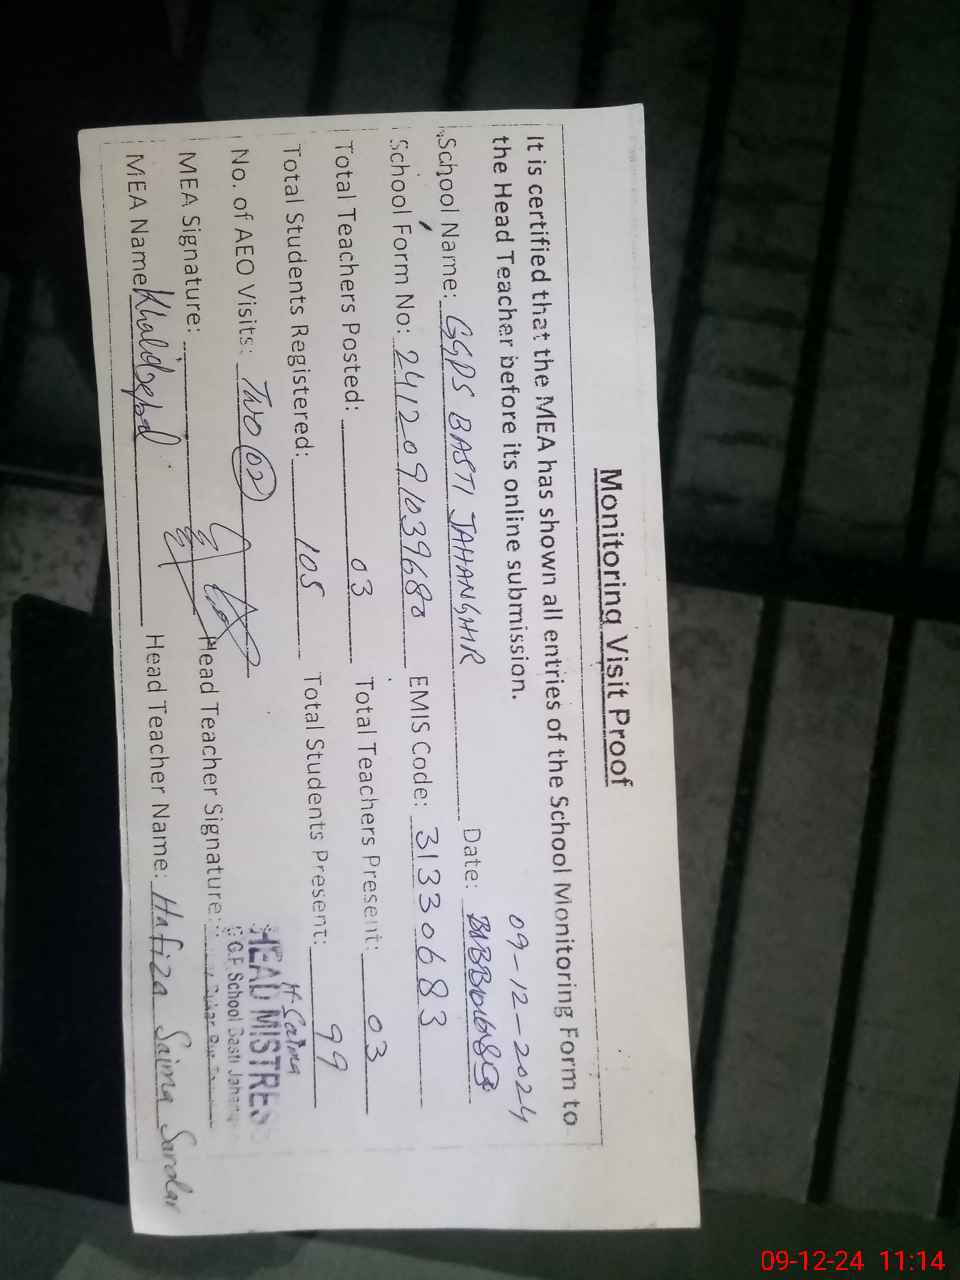 Monitoring Visit Proof
It is certified that the MEA has shown all entries of the School Monitoring Form to
the Head Teacher before its online submission.
09-12-2024
School Name: GGPS BASTI JAHANGHIR Date:
School Form No: 241209103968 EMIS Code: 31330683
Total Teachers Posted: 03 Total Teachers Present: 03
Total Students Registered: 105 Total Students Present: 99
No. of AEO Visits: Two 02
HEAD MISTRESS
H-Saima
G.F. School Basti Jahan
MEA Signature: Head Teacher Signature:
MEA Name: Head Teacher Name: Hafiza Saima Sardar
09-12-24 11:14